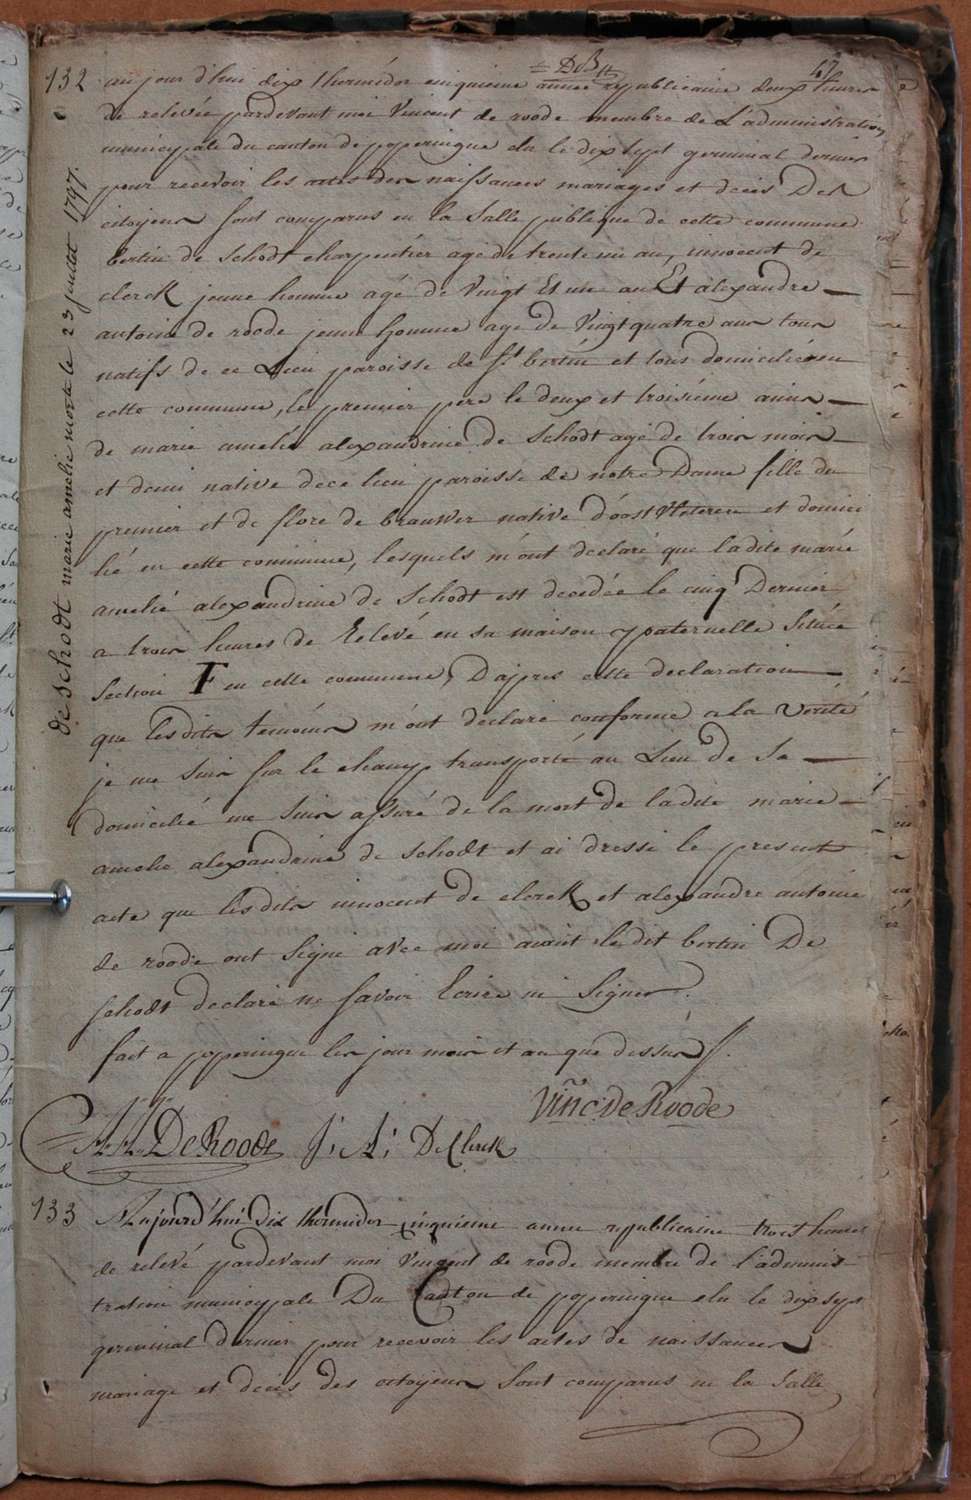 47
132 aujour d'hui dix thermidor cinquieme année republicaine deux heures
de relevée pardevant moi Vincent de roode membre de L'administration
municipale du canton de poperingue elu le dix sept germinal dernier
pour recevoir les actes des naissances mariages et décès Des
citoyens sont comparus en la Salle publique de cette commune
bertin de Schodt charpentier agé de trente un an, innocent de
clerck jeune homme agé de Vingt Et un an Et alexandre
antoine de roode jeune homme age de Vingt quatre ans tous
natifs de ce Lieu paroisse de St bertin et tous domiciliés en
cette commune, le premier pere le deux et troisiéme amis
de marie amelie alexandrine de Schodt agé de trois mois
et demi native de ce lieu paroisse de notre Dame fille du
premier et de flore de brauwer native d'oostVleteren et domici
lié en cette commune, lesquels m'ont declaré que ladite marie
amelié alexandrine de Schodt est decedée le cinq Dernier
a trois heures de Relevé en sa maison paternelle Située
Section F en cette commune, D'apres cette declaration
que lesdits temoins m'ont declaré conforme a la Verité
je me suis sur le champ transporté au Lieu de Se
domicilié me suis assuré de la mort de ladite marie
amelie alexandrine de schodt et ai dressé le present
acte que lesdits innocent de clerck et alexandre antoine
de roode ont Signe avec moi aiant ledit bertin De
schodt declaré ne savoir Ecrire ni Signer.
fait a poperingue les jour mois et an que dessus
Vinc: de Roode
A.A. De Roode J: A: De Clerck
de schodt marie amelie morte le 23 juillet 1797.
133 Aujourd'hui dix thermidor cinquieme annee republicaine trois heures
de relevé pardevant moi Vincent de roode membre de l'adminis
tration municipale Du Canton de poperingue elu le dix sept
germinal dernier pour recevoir les actes de naissances
mariage et décès des citoyens Sont comparus en la Salle